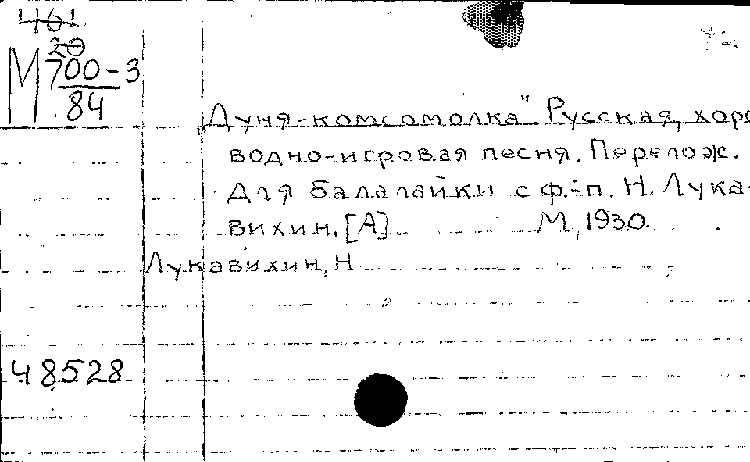 401
20
М 700-3
84
„Дуня-комсомолка" Русская, хоро
водно-игровая песня. Перелож.
для балалайки с ф.-п. Н. Лука-
вихин. [А] М, 1930.
Лукавихин, Н
48528